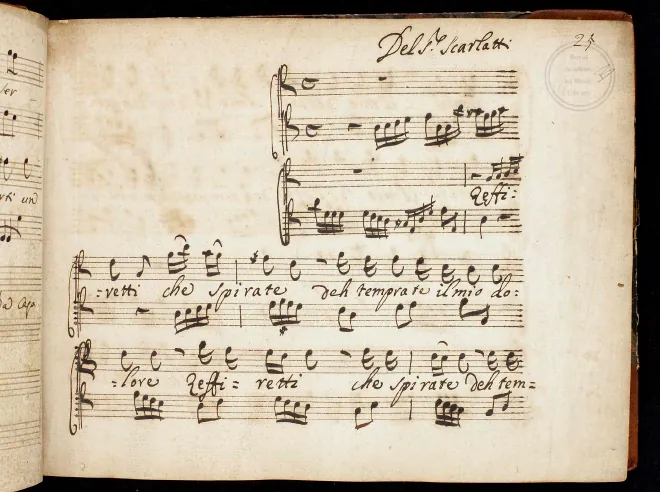 Del Sr. Scarlatti
25
Zeffi=
=retti che spirate deh temprate il mio do=
=lore Zeffi= retti che spirate deh tem=